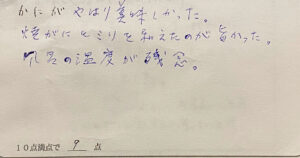 かにがやはり美味しかった。
焼がにとミソを和えたのが旨かった。
風呂の温度が残念。
10点満点で 9 点